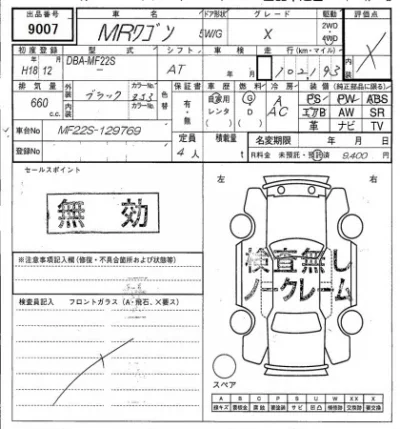 出品番号 車名 ドア形状 グレード 駆動 評価点
9007 MRワゴン 5W/G X 2WD 4WD X
初度登録 型式 シフト 車検 走行(km・マイル) 内装
H18 12 DBA-MF22S AT 年 月 102193
排気量 外装 ブラック カラーNo. ZJ3 色替 保証書 車歴 燃料 冷房 装備(純正部品に限る)
660 c.c. 内装 カラーNo. 有・無 自家用 G A PS PW ABS
レンタ D AC エアB AW SR
( ) ( ) 革 ナビ TV
車台No MF22S-129769 定員 積載量 名変期限 年 月 日
登録No 4人 t R料金 未預託・預託済 9,400円
セールスポイント 左 右
無効
検査無し
ノークレーム
※注意事項記入欄(修復・不具合箇所および状態等)
検査員記入 フロントガラス(A・飛石、X要ス)
スペア
A B C P S U W X XX